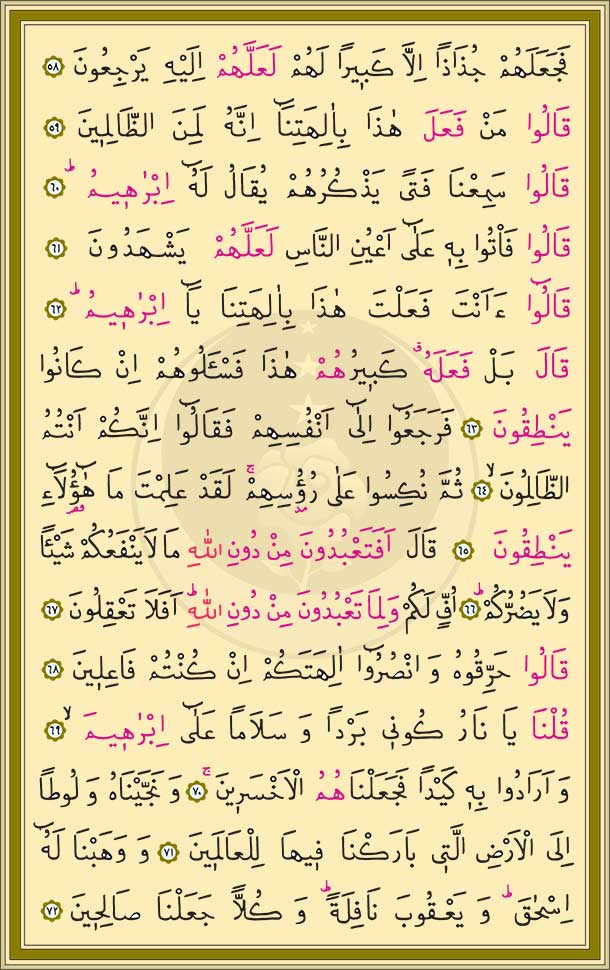 فَجَعَلَهُمْ جُذَاذًا اِلَّا كَبٖيرًا لَهُمْ لَعَلَّهُمْ اِلَيْهِ يَرْجِعُونَ ﴿٥٨﴾
قَالُوا مَنْ فَعَلَ هٰذَا بِاٰلِهَتِنَٓا اِنَّهُ لَمِنَ الظَّالِمٖينَ ﴿٥٩﴾
قَالُوا سَمِعْنَا فَتًى يَذْكُرُهُمْ يُقَالُ لَهُٓ اِبْرٰهٖيمُ ؕ ﴿٦٠﴾
قَالُوا فَاْتُوا بِهٖ عَلٰٓى اَعْيُنِ النَّاسِ لَعَلَّهُمْ يَشْهَدُونَ ﴿٦١﴾
قَالُٓوا ءَاَنْتَ فَعَلْتَ هٰذَا بِاٰلِهَتِنَا يَٓا اِبْرٰهٖيمُ ؕ ﴿٦٢﴾
قَالَ بَلْ فَعَلَهُ ۗ كَبٖيرُهُمْ هٰذَا فَسْـَٔلُوهُمْ اِنْ كَانُوا
يَنْطِقُونَ ﴿٦٣﴾ فَرَجَعُٓوا اِلٰٓى اَنْفُسِهِمْ فَقَالُٓوا اِنَّكُمْ اَنْتُمُ
الظَّالِمُونَ ۙ ﴿٦٤﴾ ثُمَّ نُكِسُوا عَلٰى رُؤُسِهِمْ ۚ لَقَدْ عَلِمْتَ مَا هٰٓؤُلَٓاءِ
يَنْطِقُونَ ﴿٦٥﴾ قَالَ اَفَتَعْبُدُونَ مِنْ دُونِ اللّٰهِ مَا لَا يَنْفَعُكُمْ شَيْـًٔا
وَلَا يَضُرُّكُمْ ؕ ﴿٦٦﴾ اُفٍّ لَكُمْ وَلِمَا تَعْبُدُونَ مِنْ دُونِ اللّٰهِ ؕ اَفَلَا تَعْقِلُونَ ﴿٦٧﴾
قَالُوا حَرِّقُوهُ وَانْصُرُٓوا اٰلِهَتَكُمْ اِنْ كُنْتُمْ فَاعِلٖينَ ﴿٦٨﴾
قُلْنَا يَا نَارُ كُونٖي بَرْدًا وَسَلَامًا عَلٰٓى اِبْرٰهٖيمَ ۙ ﴿٦٩﴾
وَاَرَادُوا بِهٖ كَيْدًا فَجَعَلْنَاهُمُ الْاَخْسَرٖينَ ۚ ﴿٧٠﴾ وَنَجَّيْنَاهُ وَلُوطًا
اِلَى الْاَرْضِ الَّتٖي بَارَكْنَا فٖيهَا لِلْعَالَمٖينَ ﴿٧١﴾ وَوَهَبْنَا لَهُٓ
اِسْحٰقَ ؕ وَيَعْقُوبَ نَافِلَةً ؕ وَكُلًّا جَعَلْنَا صَالِحٖينَ ﴿٧٢﴾